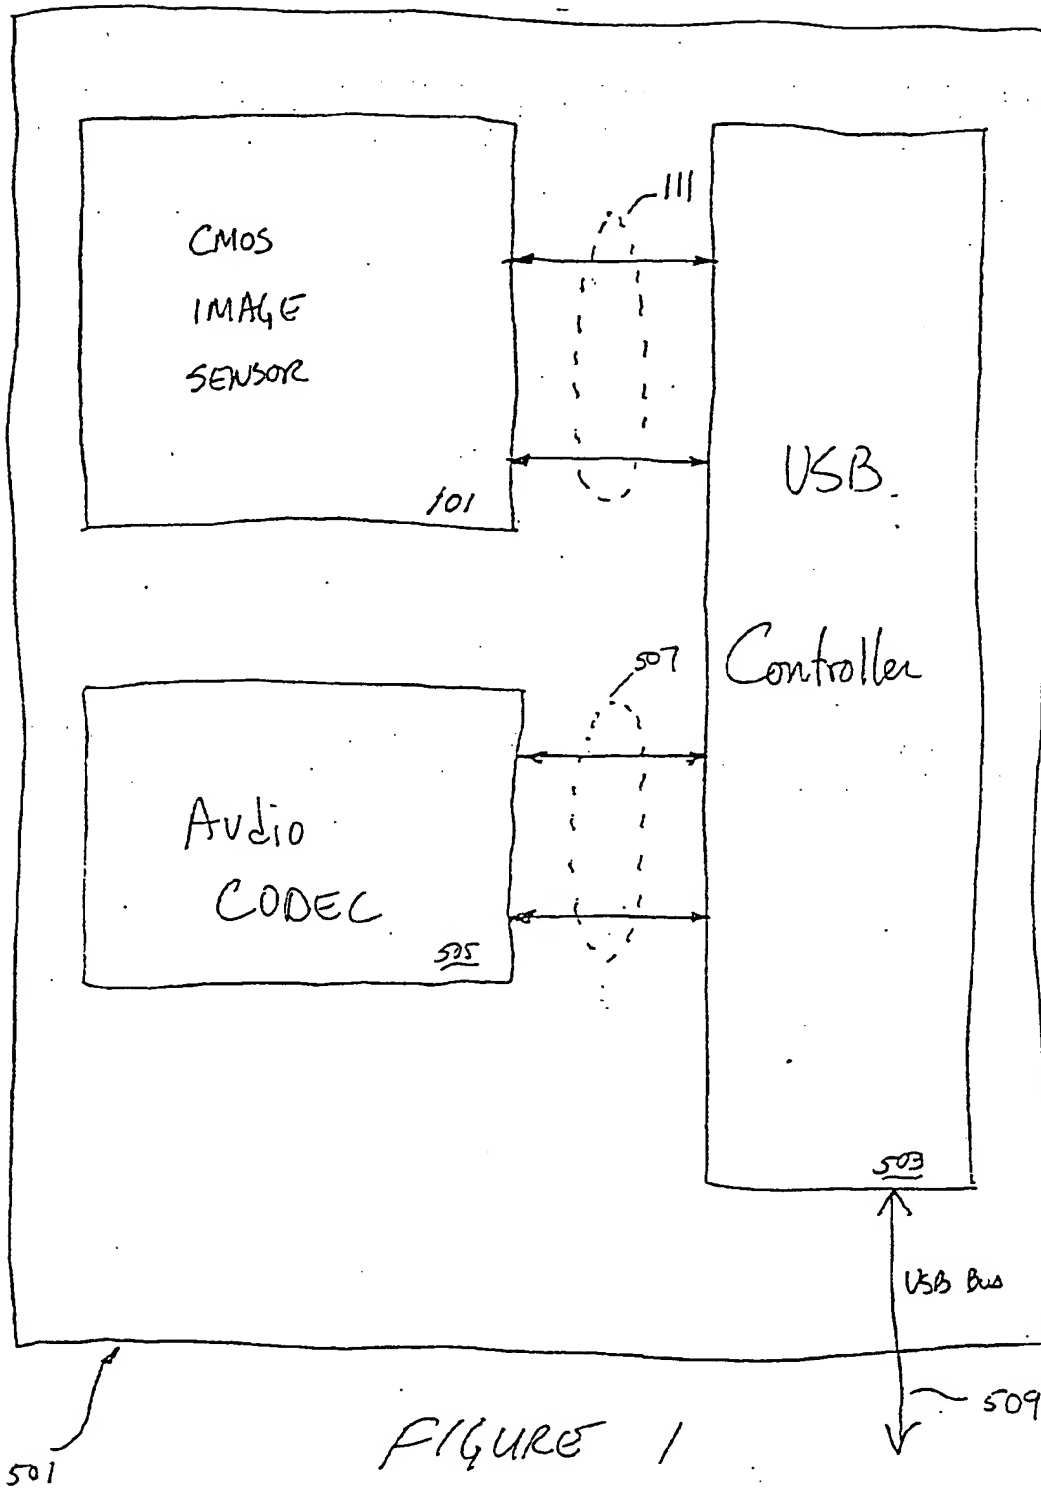 111
CMOS
IMAGE
SENSOR
101
USB
Controller
507
Audio
CODEC
505
503
USB Bus
509
501
FIGURE 1